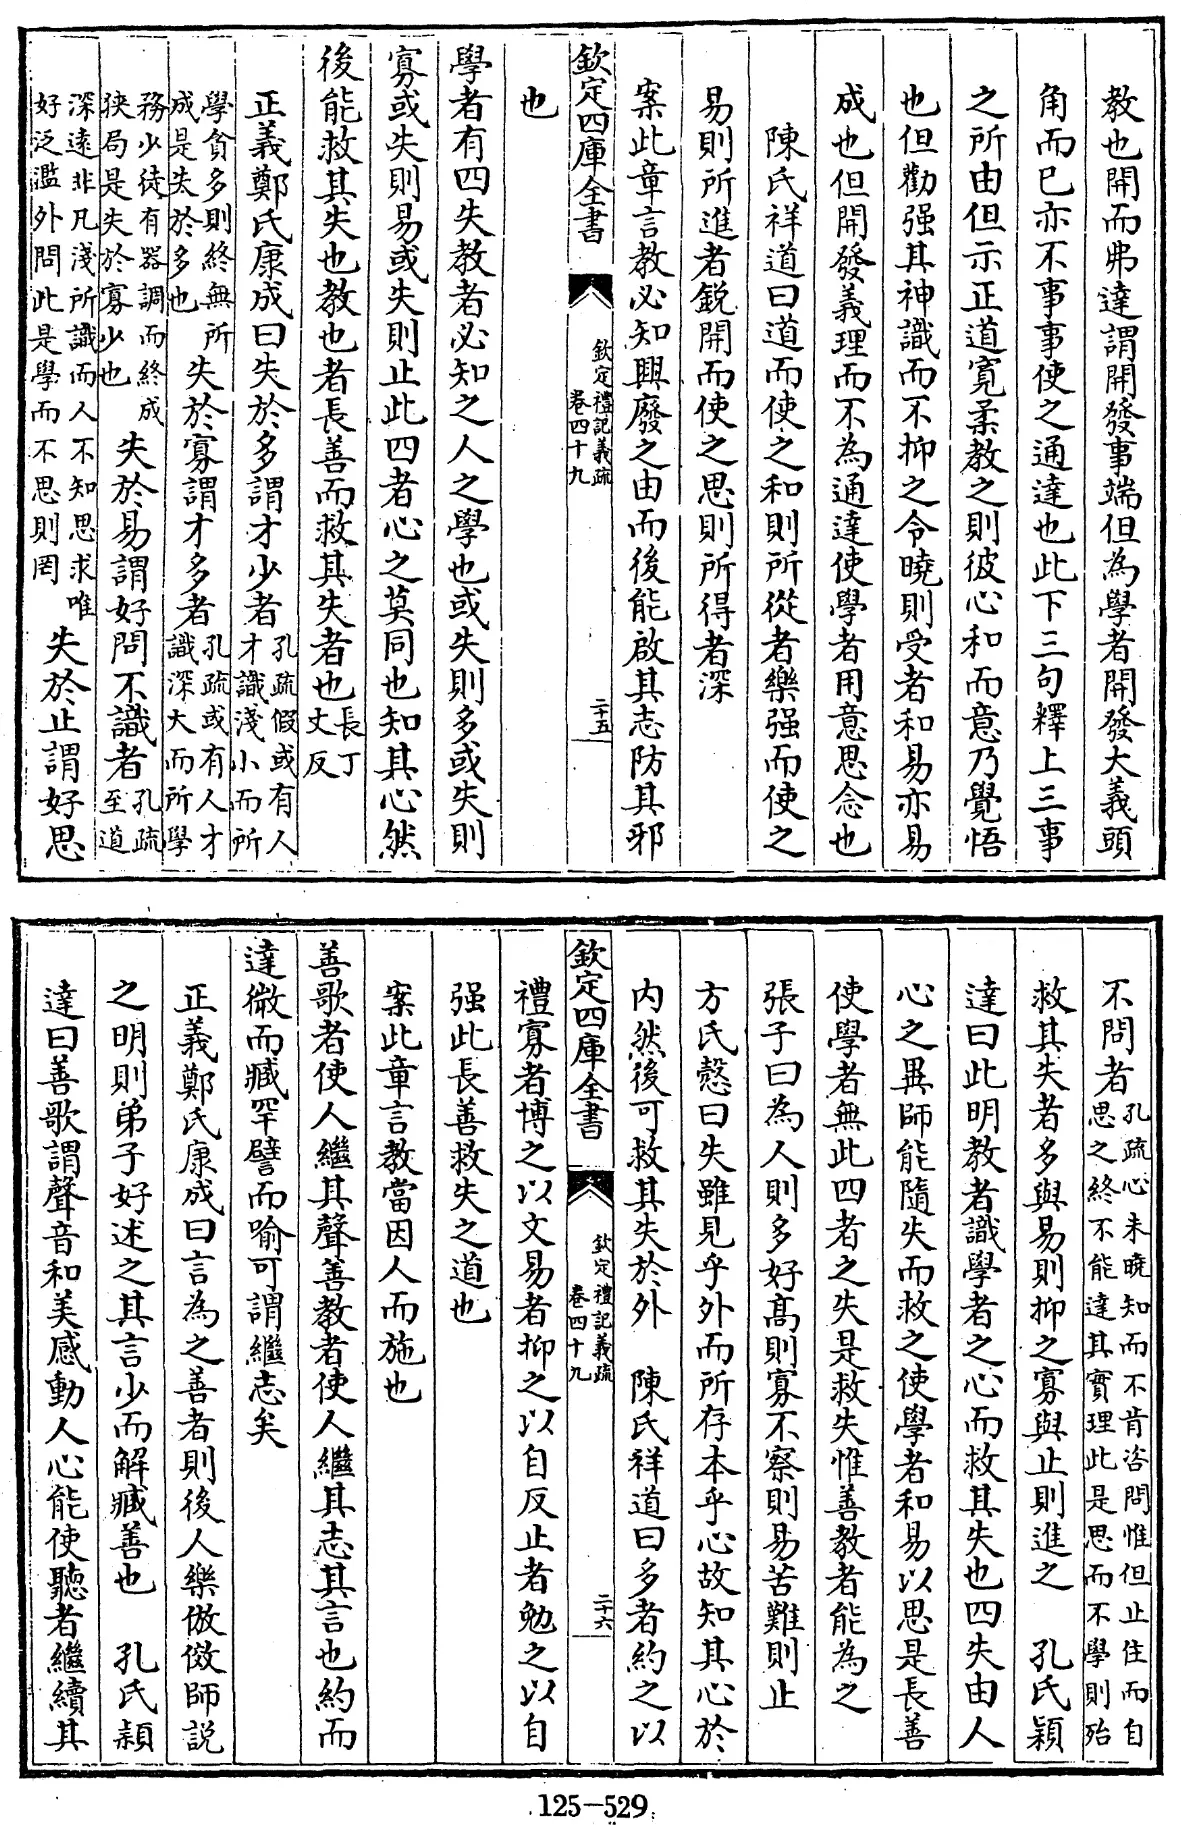 教也開而弗達謂開發事端但為學者開發大義頭
角而已亦不事事使之通達也此下三句釋上三事
之所由但示正道寛柔教之則彼心和而意乃覺悟
也但勸强其神識而不抑之令曉則受者和易亦易
成也但開發義理而不為通達使學者用意思念也
陳氏祥道曰道而使之和則所從者樂强而使之
易則所進者鋭開而使之思則所得者深
案此章言教必知興廢之由而後能啟其志防其邪
欽定四庫全書
欽定禮記義疏
卷四十九
二十五
也
學者有四失教者必知之人之學也或失則多或失則
寡或失則易或失則止此四者心之莫同也知其心然
後能救其失也教也者長善而救其失者也長丁
丈反
正義鄭氏康成曰失於多謂才少者孔疏假或有人
才識淺小而所
學貪多則終無所
成是失於多也失於寡謂才多者孔疏或有人才
識深大而所學
務少徒有器調而終成
狹局是失於寡少也失於易謂好問不識者孔疏
至道
深遠非凡淺所識而人不知思求唯
好泛濫外問此是學而不思則罔失於止謂好思
不問者孔疏心未曉知而不肯咨問惟但止住而自
思之終不能達其實理此是思而不學則殆
救其失者多與易則抑之寡與止則進之 孔氏穎
達曰此明教者識學者之心而救其失也四失由人
心之異師能隨失而救之使學者和易以思是長善
使學者無此四者之失是救失惟善教者能為之
張子曰為人則多好髙則寡不察則易苦難則止
方氏慤曰失雖見乎外而所存本乎心故知其心於
内然後可救其失於外 陳氏祥道曰多者約之以
欽定四庫全書
欽定禮記義疏
卷四十九
二十六
禮寡者博之以文易者抑之以自反止者勉之以自
强此長善救失之道也
案此章言教當因人而施也
善歌者使人繼其聲善教者使人繼其志其言也約而
達微而臧罕譬而喻可謂繼志矣
正義鄭氏康成曰言為之善者則後人樂倣傚師説
之明則弟子好述之其言少而解臧善也 孔氏穎
達曰善歌謂聲音和美感動人心能使聽者繼續其
125-529